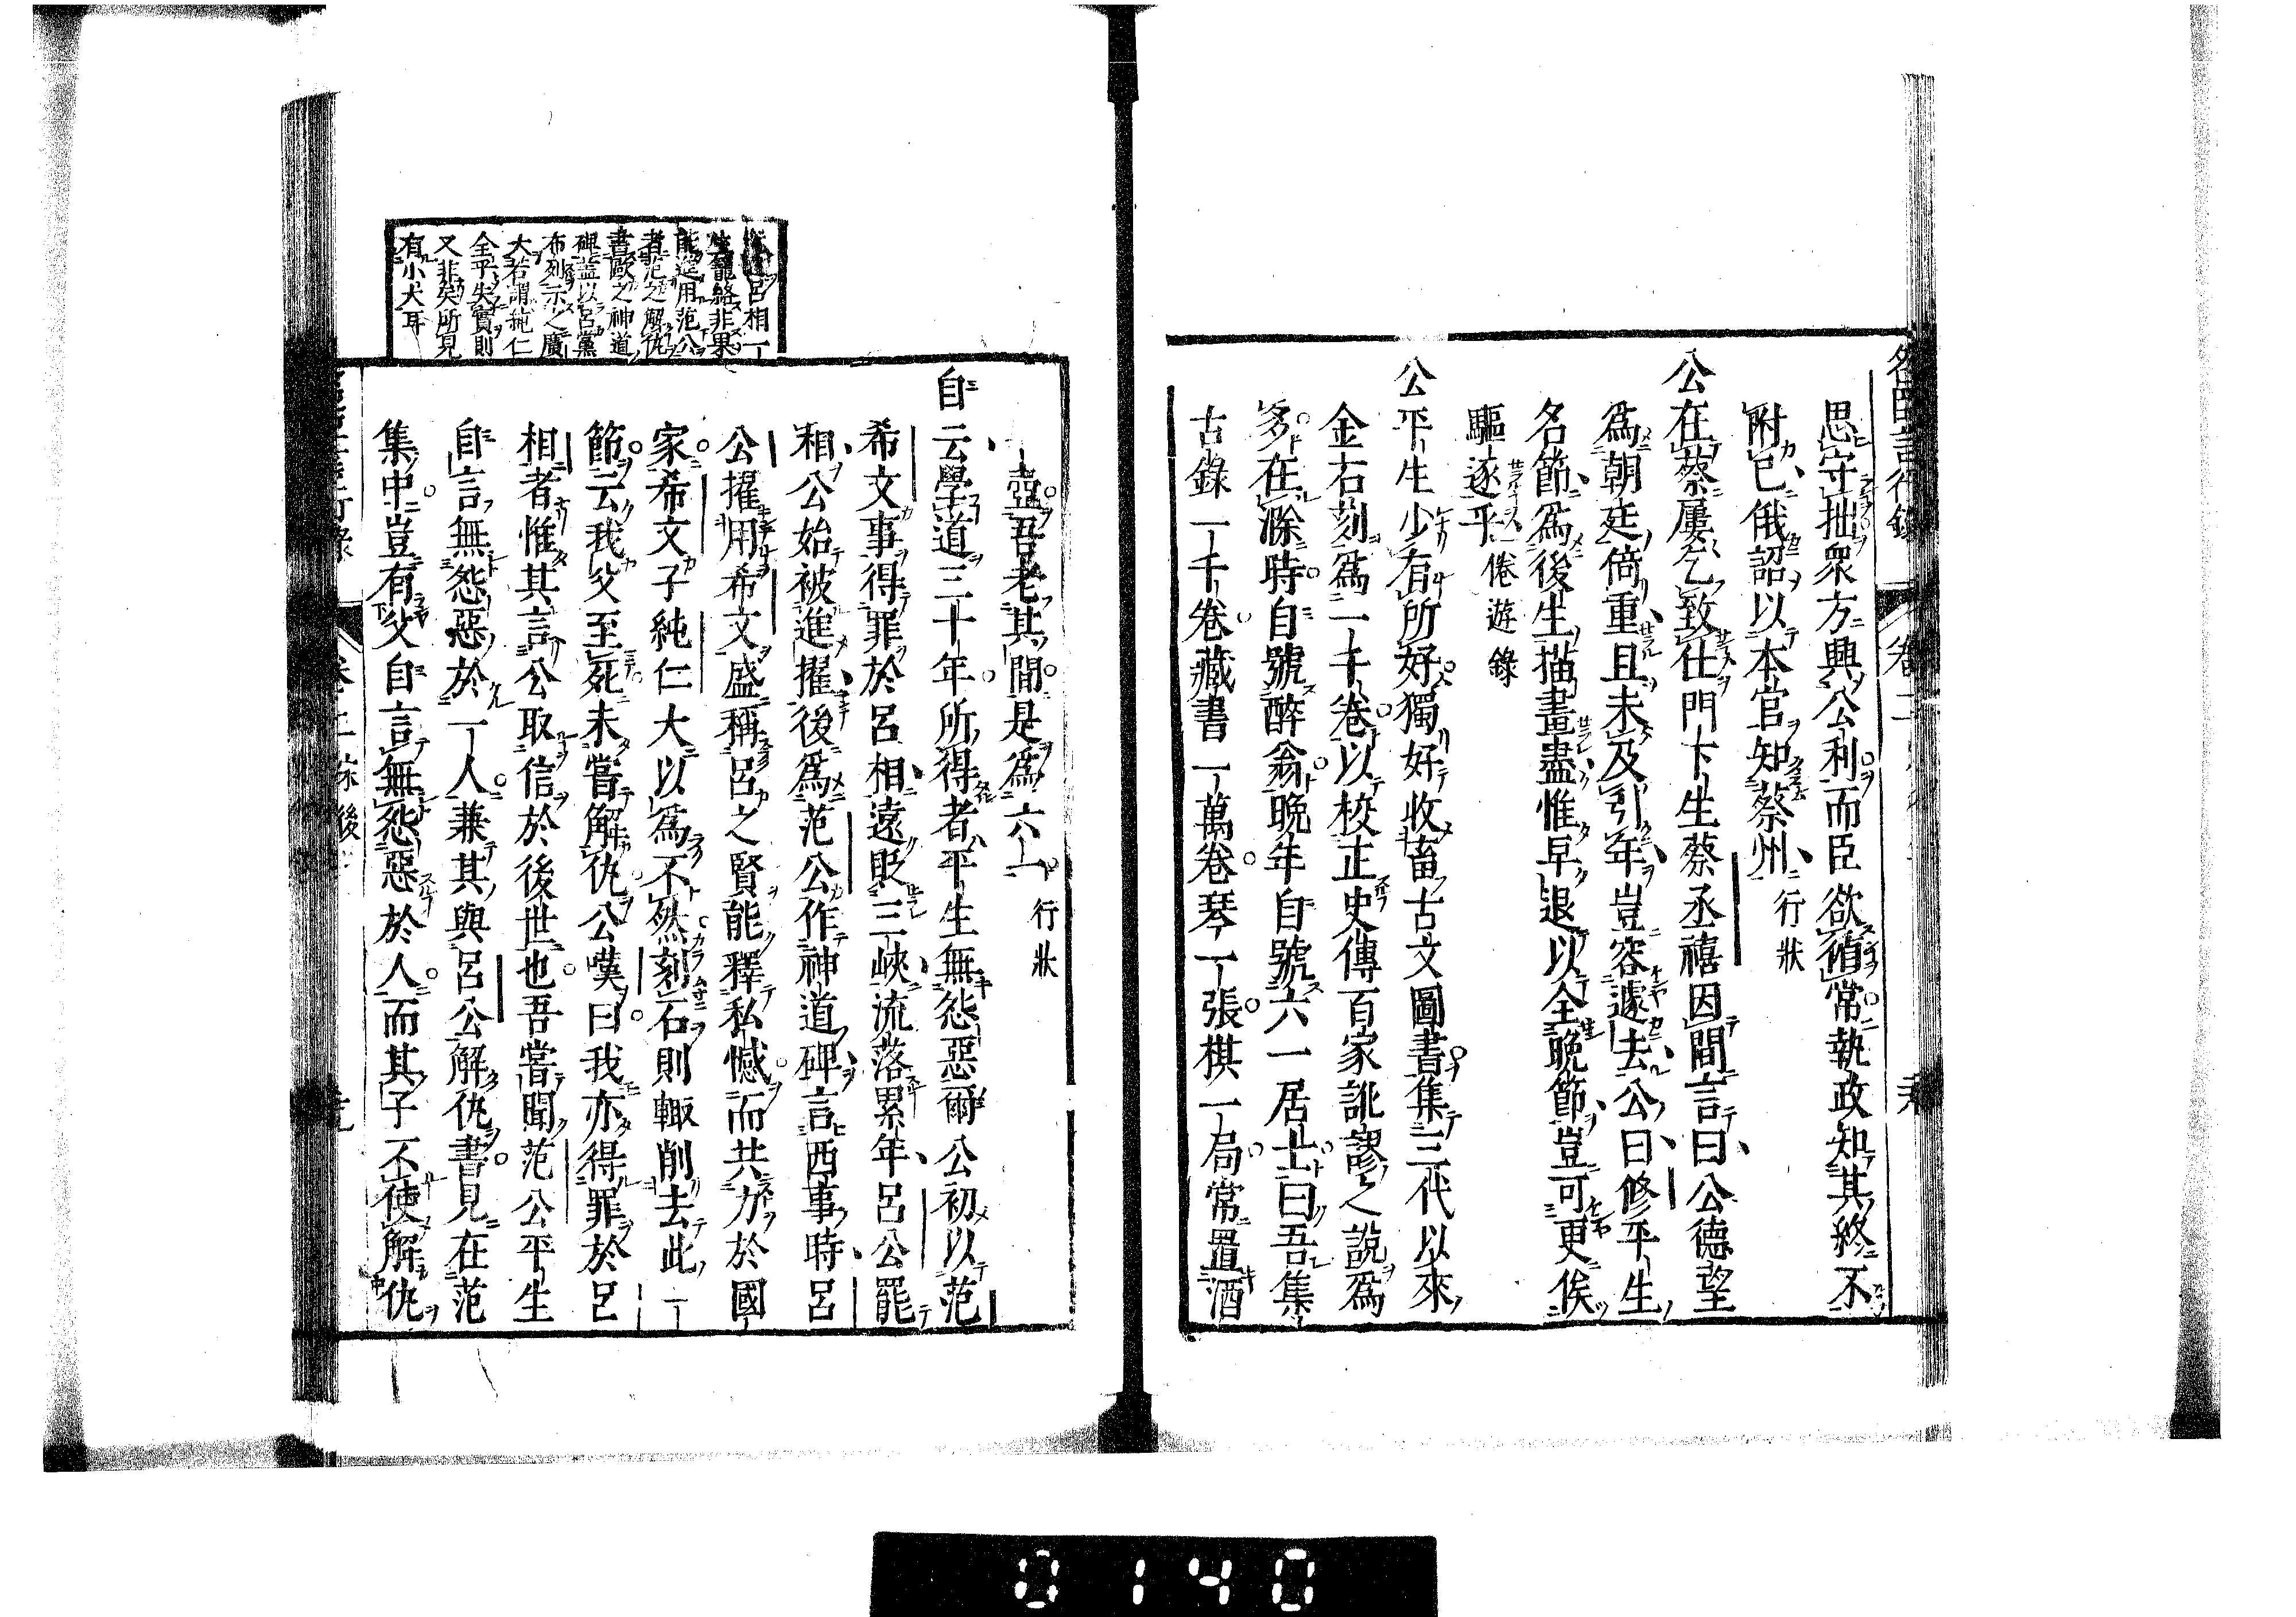 思守拙衆方興公利而臣欲循常執政知其終不
附已俄詔以本官知蔡州行狀
公在蔡屢乞致仕門下生蔡丞禧因間言曰公德望
爲朝廷倚重且未及引年豈容遽去公曰修平生
名節爲後生描畫盡惟早退以全晚節豈可更俟
驅逐乎倦遊錄
公平生少有所好獨好收畜古文圖書集三代以來
金石刻爲一千卷以校正史傳百家訛謬之說爲
多在滁時自號醉翁晚年自號六一居士曰吾集
古錄一千卷藏書一萬卷琴一張棋一局常置酒
一壺吾老其間是爲六一行狀
自云學道三十年所得者平生無怨惡爾公初以范
希文事得罪於呂相遠貶三峽流落累年呂公罷
相公始被進擢後爲范公作神道碑言西事時呂
公擢用希文盛稱呂之賢能釋私憾而共力於國
家希文子純仁大以爲不然刻石則輙削去此一
節云我父至死未嘗解仇公嘆曰我亦得罪於呂
相者惟其言公取信於後世也吾嘗聞范公平生
自言無怨惡於一人兼其與呂公解仇書見在范
集中豈有父自言無怨惡於人而其子不使解仇
呂相一
籠絡非果
能進用范公
者范之解仇
書歐之神道
碑蓋以呂黨
布列示之廣
大若謂純仁
全乎失實則
又非矣所見
有小大耳
0140